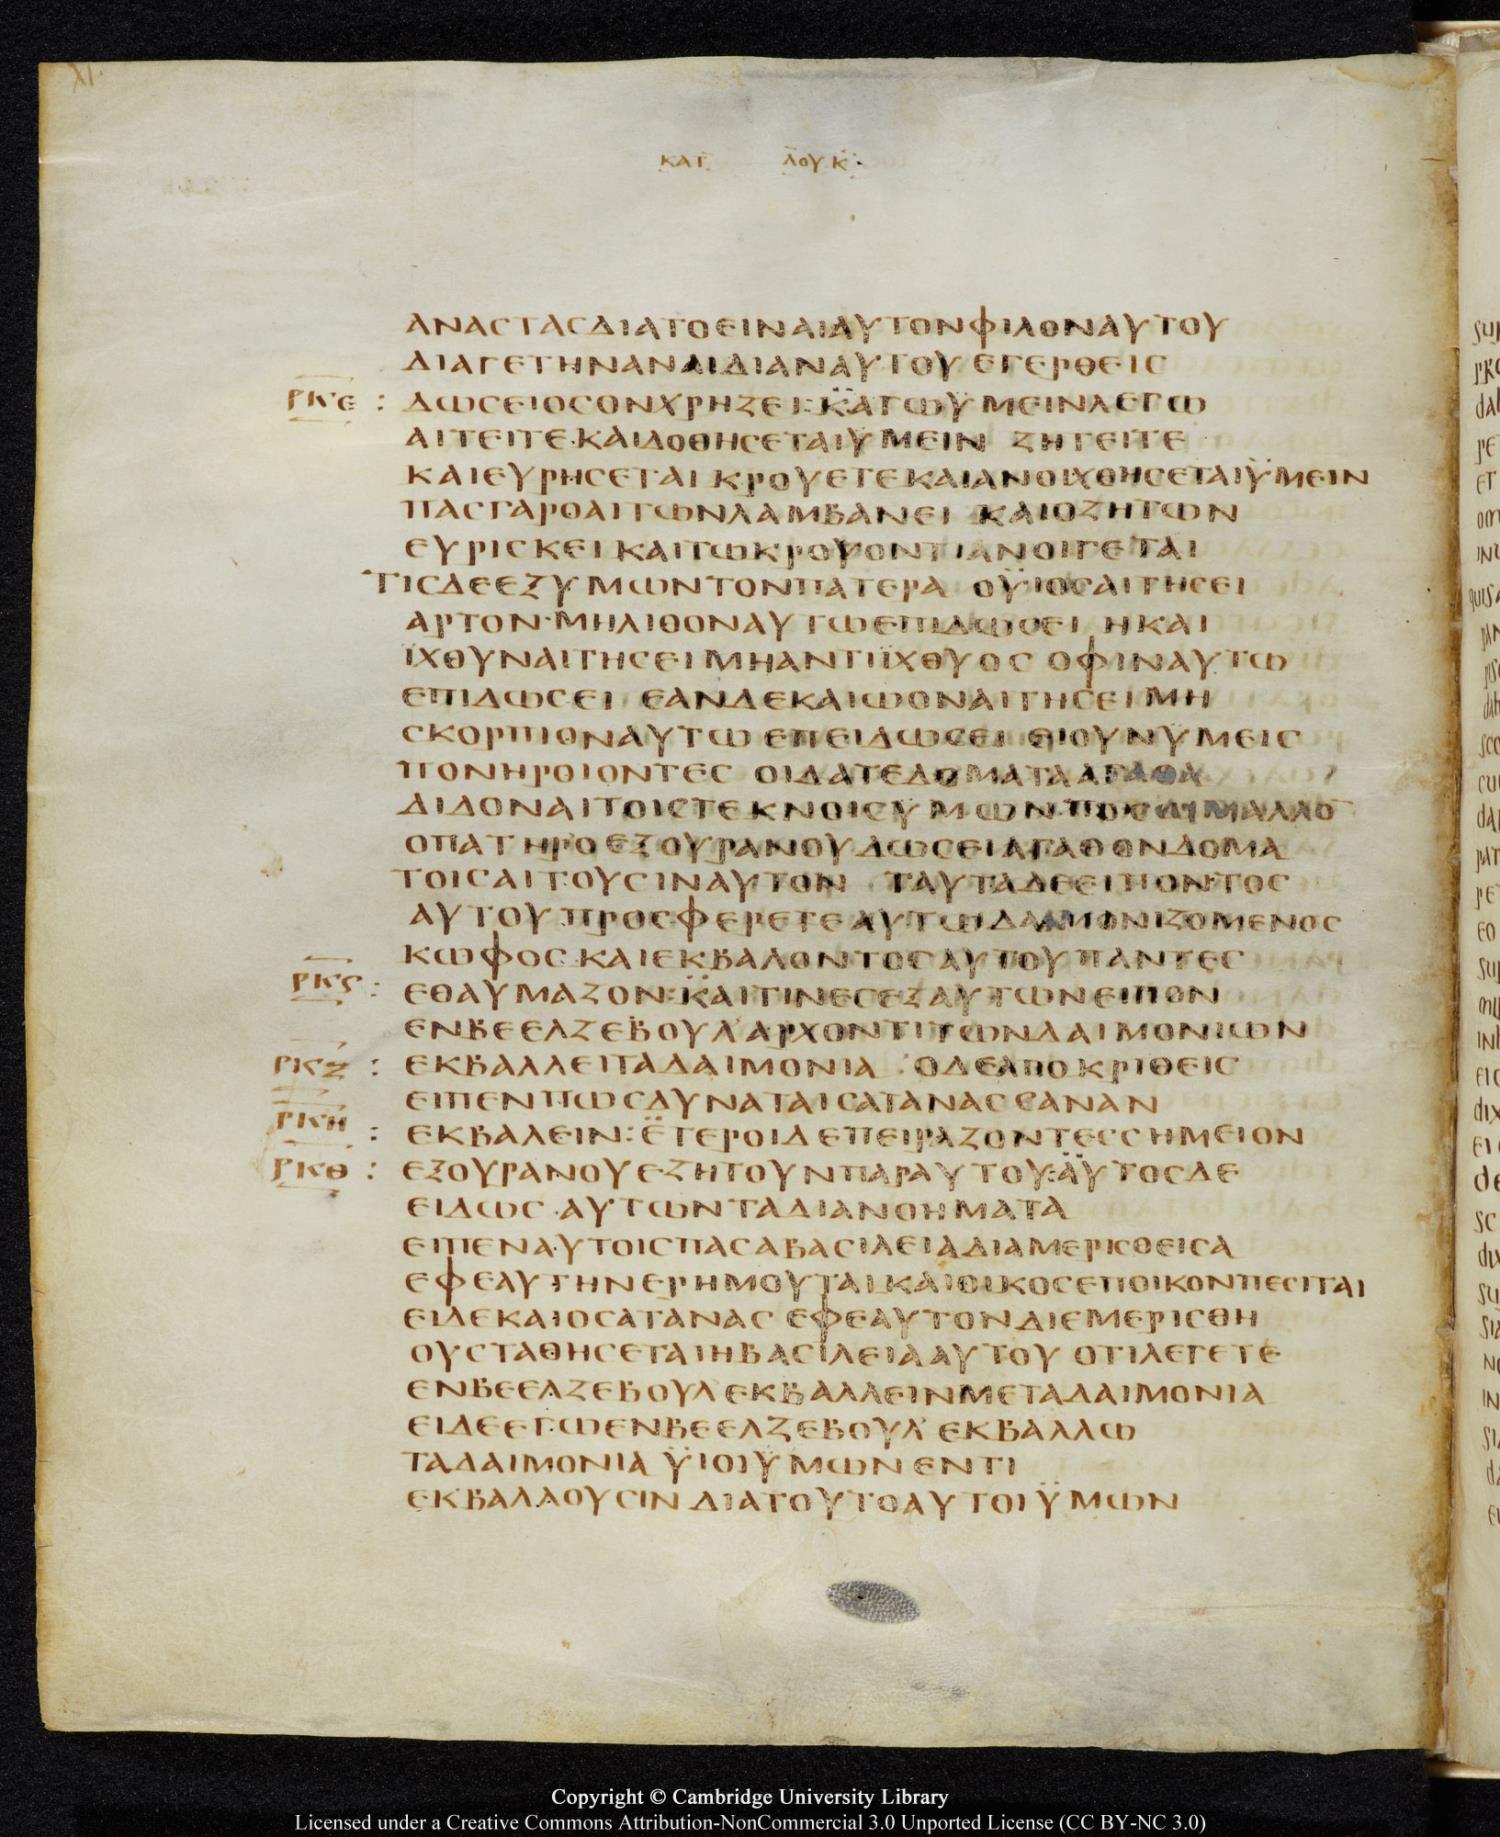 XI
ΚΑΤ ΛΟΥΚ
ΑΝΑCΤΑCΔΙΑΤΟΕΙΝΑΙΑΥΤΟΝΦΙΛΟΝΑΥΤΟΥ
ΔΙΑΓΕΤΗΝΑΝΑΙΔΙΑΝΑΥΤΟΥ ΕΓΕΡΘΕΙC
ΡΚΕ : ΔΩCΕΙΟCΟΝΧΡΗΖΕΙ:ΚΑΓΩΫΜΕΙΝΛΕΓΩ
ΑΙΤΕΙΤΕ·ΚΑΙΔΟΘΗCΕΤΑΙΥΜΕΙΝ ΖΗΤΕΙΤΕ
ΚΑΙΕΥΡΗCΕΤΑΙ ΚΡΟΥΕΤΕΚΑΙΑΝΟΙΧΘΗCΕΤΑΙΫΜΕΙΝ
ΠΑCΓΑΡΟΑΙΤΩΝΛΑΜΒΑΝΕΙ ΚΑΙΟΖΗΤΩΝ
ΕΥΡΙCΚΕΙ ΚΑΙΤΩΚΡΟΥΟΝΤΙΑΝΟΙΓΕΤΑΙ
ΤΙCΔΕΕΞΥΜΩΝΤΟΝΠΑΤΕΡΑ ΟΫΙΟCΑΙΤΗCΕΙ
ΑΡΤΟΝ·ΜΗΛΙΘΟΝΑΥΤΩΕΠΙΔΩCΕΙ ΗΚΑΙ
ΙΧΘΥΝΑΙΤΗCΕΙΜΗΑΝΤΙΪΧΘΥΟC ΟΦΙΝΑΥΤΩ
ΕΠΙΔΩCΕΙ ΕΑΝΔΕΚΑΙΩΟΝΑΙΤΗCΕΙΜΗ
CΚΟΡΠΙΟΝΑΥΤΩ ΕΠΕΙΔΩCΕΙ ΕΙΟΥΝΥΜΕΙC
ΠΟΝΗΡΟΙΟΝΤΕC ΟΙΔΑΤΕΔΟΜΑΤΑΑΓΑΘΑ
ΔΙΔΟΝΑΙΤΟΙCΤΕΚΝΟΙCΥΜΩΝ·ΠΟCΩΜΑΛΛΟ̅
ΟΠΑΤΗΡΟΕΞΟΥΡΑΝΟΥΔΩCΕΙΑΓΑΘΟΝΔΟΜΑ
ΤΟΙCΑΙΤΟΥCΙΝΑΥΤΟΝ ΤΑΥΤΑΔΕΕΙΠΟΝΤΟC
ΑΥΤΟΥΠΡΟCΦΕΡΕΤΕΑΥΤΩΔΑΙΜΟΝΙΖΟΜΕΝΟC
ΚΩΦΟC·ΚΑΙΕΚΒΑΛΟΝΤΟCΑΥΤΟΥΠΑΝΤΕC
ΡΚϚ : ΕΘΑΥΜΑΖΟΝ:ΚΑΙΤΙΝΕCΕΞΑΥΤΩΝΕΙΠΟΝ
ΕΝΒΕΕΛΖΕΒΟΥΛ'ΑΡΧΟΝΤΙΤΩΝΔΑΙΜΟΝΙΩΝ
ΡΚΖ : ΕΚΒΑΛΛΕΙΤΑΔΑΙΜΟΝΙΑ :ΟΔΕΑΠΟΚΡΙΘΕΙC
ΕΙΠΕΝΠΩCΔΥΝΑΤΑΙCΑΤΑΝΑC CΑΝΑΝ
ΡΚΗ : ΕΚΒΑΛΕΙΝ:ΕΤΕΡΟΙΔΕΠΕΙΡΑΖΟΝΤΕCCΗΜΕΙΟΝ
ΡΚΘ : ΕΞΟΥΡΑΝΟΥΕΖΗΤΟΥΝΠΑΡΑΥΤΟΥ:ΑΥΤΟCΔΕ
ΕΙΔΩC·ΑΥΤΩΝΤΑΔΙΑΝΟΗΜΑΤΑ
ΕΙΠΕΝΑΥΤΟΙCΠΑCΑΒΑCΙΛΕΙΑΔΙΑΜΕΡΙCΘΕΙCΑ
ΕΦΕΑΥΤΗΝΕΡΗΜΟΥΤΑΙ·ΚΑΙΟΙΚΟCΕΠΟΙΚΟΝΠΕCΙΤΑΙ
ΕΙΔΕΚΑΙΟCΑΤΑΝΑC ΕΦΕΑΥΤΟΝΔΙΕΜΕΡΙCΘΗ
ΟΥCΤΑΘΗCΕΤΑΙΗΒΑCΙΛΕΙΑΑΥΤΟΥ ΟΤΙΛΕΓΕΤΕ
ΕΝΒΕΕΛΖΕΒΟΥΛ ΕΚΒΑΛΛΕΙΝΜΕΤΑΔΑΙΜΟΝΙΑ
ΕΙΔΕΕΓΩΕΝΒΕΕΛΖΕΒΟΥΛ' ΕΚΒΑΛΛΩ
ΤΑΔΑΙΜΟΝΙΑ ΫΙΟΙΫΜΩΝΕΝΤΙ
ΕΚΒΑΛΛΟΥCΙΝ ΔΙΑΤΟΥΤΟΑΥΤΟΙΫΜΩΝ
Copyright © Cambridge University Library
Licensed under a Creative Commons Attribution-NonCommercial 3.0 Unported License (CC BY-NC 3.0)